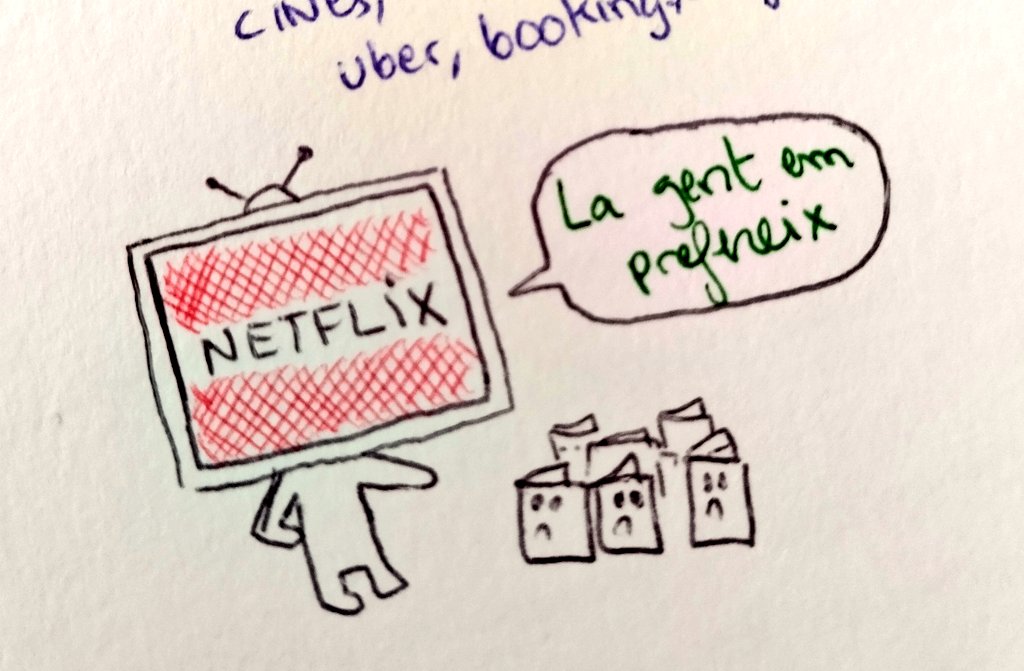 cines,
uber, booking,
NETFLIX
La gent em
prefereix